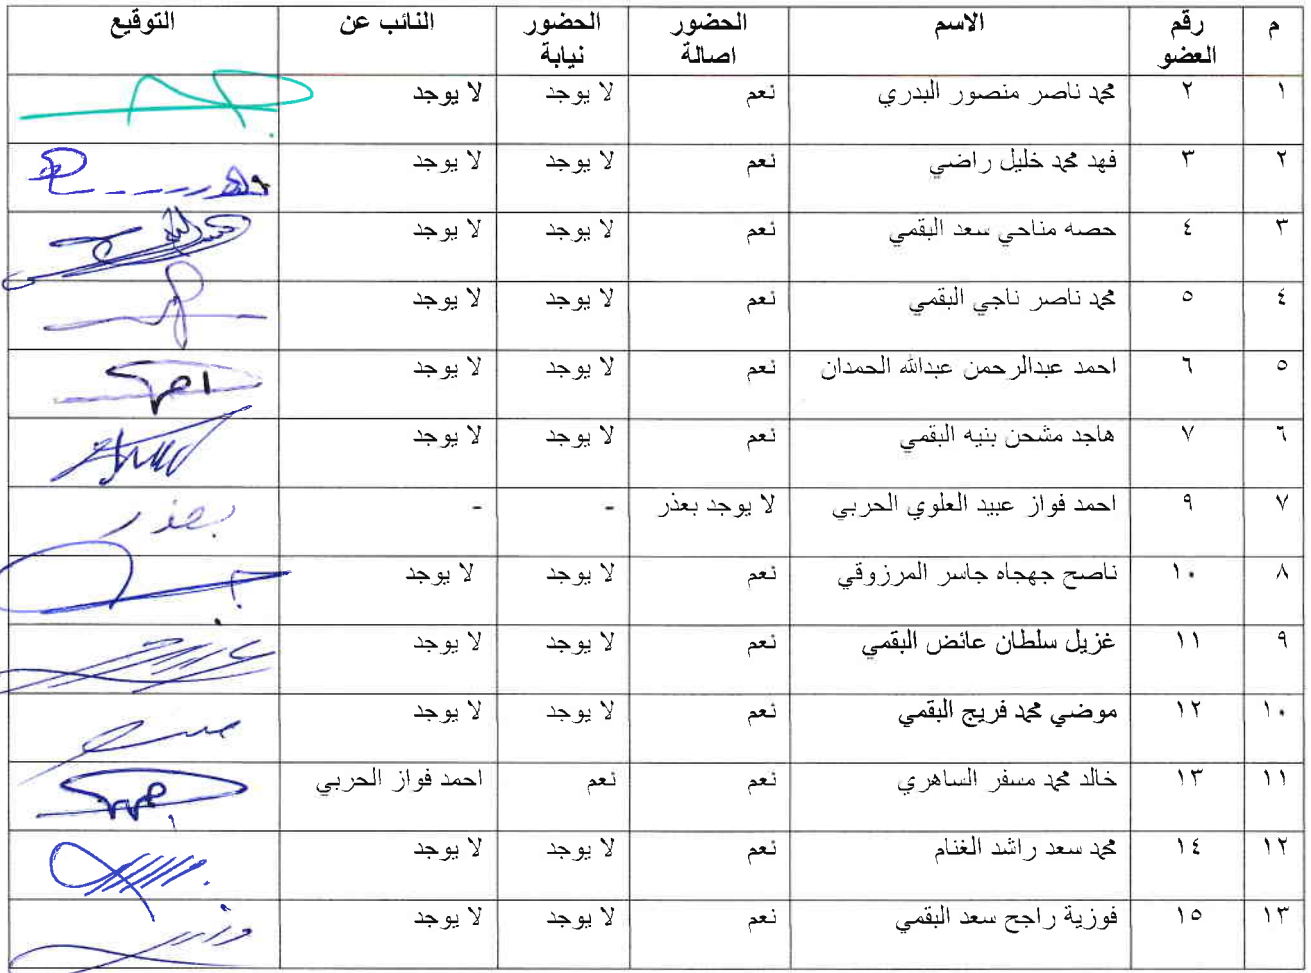 م رقم العضو الاسم الحضور اصالة الحضور نيابة النائب عن التوقيع
١ ٢ محمد ناصر منصور البدري نعم لا يوجد لا يوجد
٢ ٣ فهد محمد خليل راضي نعم لا يوجد لا يوجد
٣ ٤ حصه مناحي سعد البقمي نعم لا يوجد لا يوجد
٤ ٥ محمد ناصر ناجي البقمي نعم لا يوجد لا يوجد
٥ ٦ احمد عبدالرحمن عبدالله الحمدان نعم لا يوجد لا يوجد
٦ ٧ هاجد مشحن بنيه البقمي نعم لا يوجد لا يوجد
٧ ٩ احمد فواز عبيد العلوي الحربي لا يوجد بعذر - - بعذر
٨ ١٠ ناصح جهجاه جاسر المرزوقي نعم لا يوجد لا يوجد
٩ ١١ غزيل سلطان عائض البقمي نعم لا يوجد لا يوجد
١٠ ١٢ موضي محمد فريج البقمي نعم لا يوجد لا يوجد
١١ ١٣ خالد محمد مسفر الساهري نعم نعم احمد فواز الحربي
١٢ ١٤ محمد سعد راشد الغنام نعم لا يوجد لا يوجد
١٣ ١٥ فوزية راجح سعد البقمي نعم لا يوجد لا يوجد